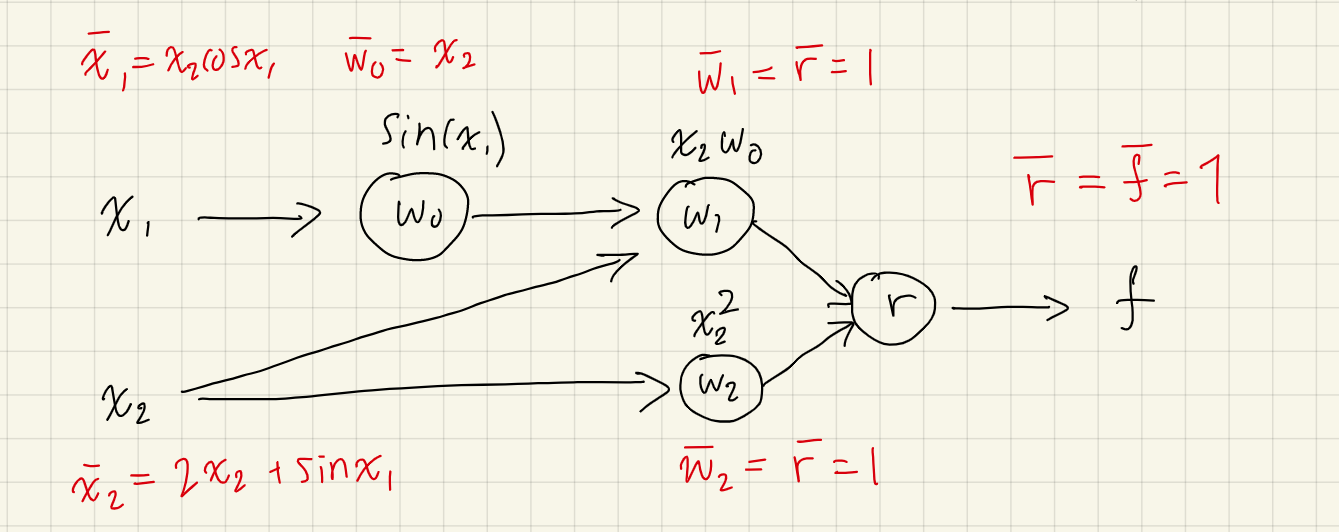 x̄₁ = x₂cosx₁ w̄₀ = x₂ w̄₁ = r̄ = 1
sin(x₁) x₂w₀
r̄ = f̄ = 1
x₁ w₀ w₁
r f
x₂²
x₂ w₂
x̄₂ = 2x₂ + sinx₁ w̄₂ = r̄ = 1